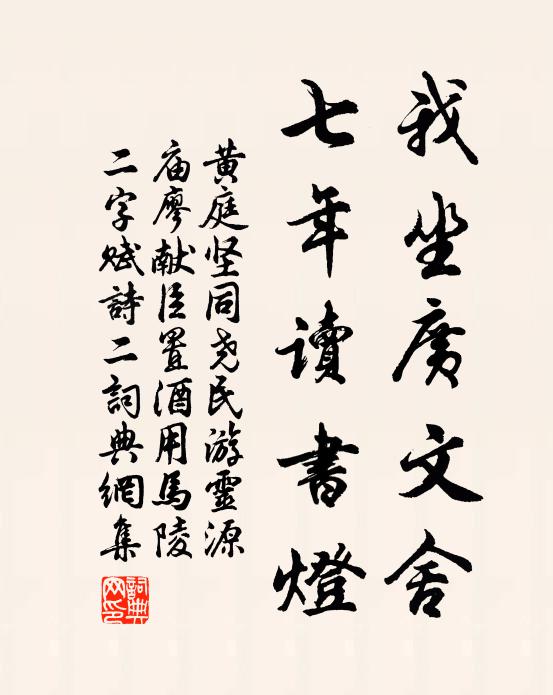 我坐廣文舍
七年讀書燈
黄庭坚同尧民游靈源
庙廖献臣置酒用馬陵
二字赋詩二詞典網集
詞典网印